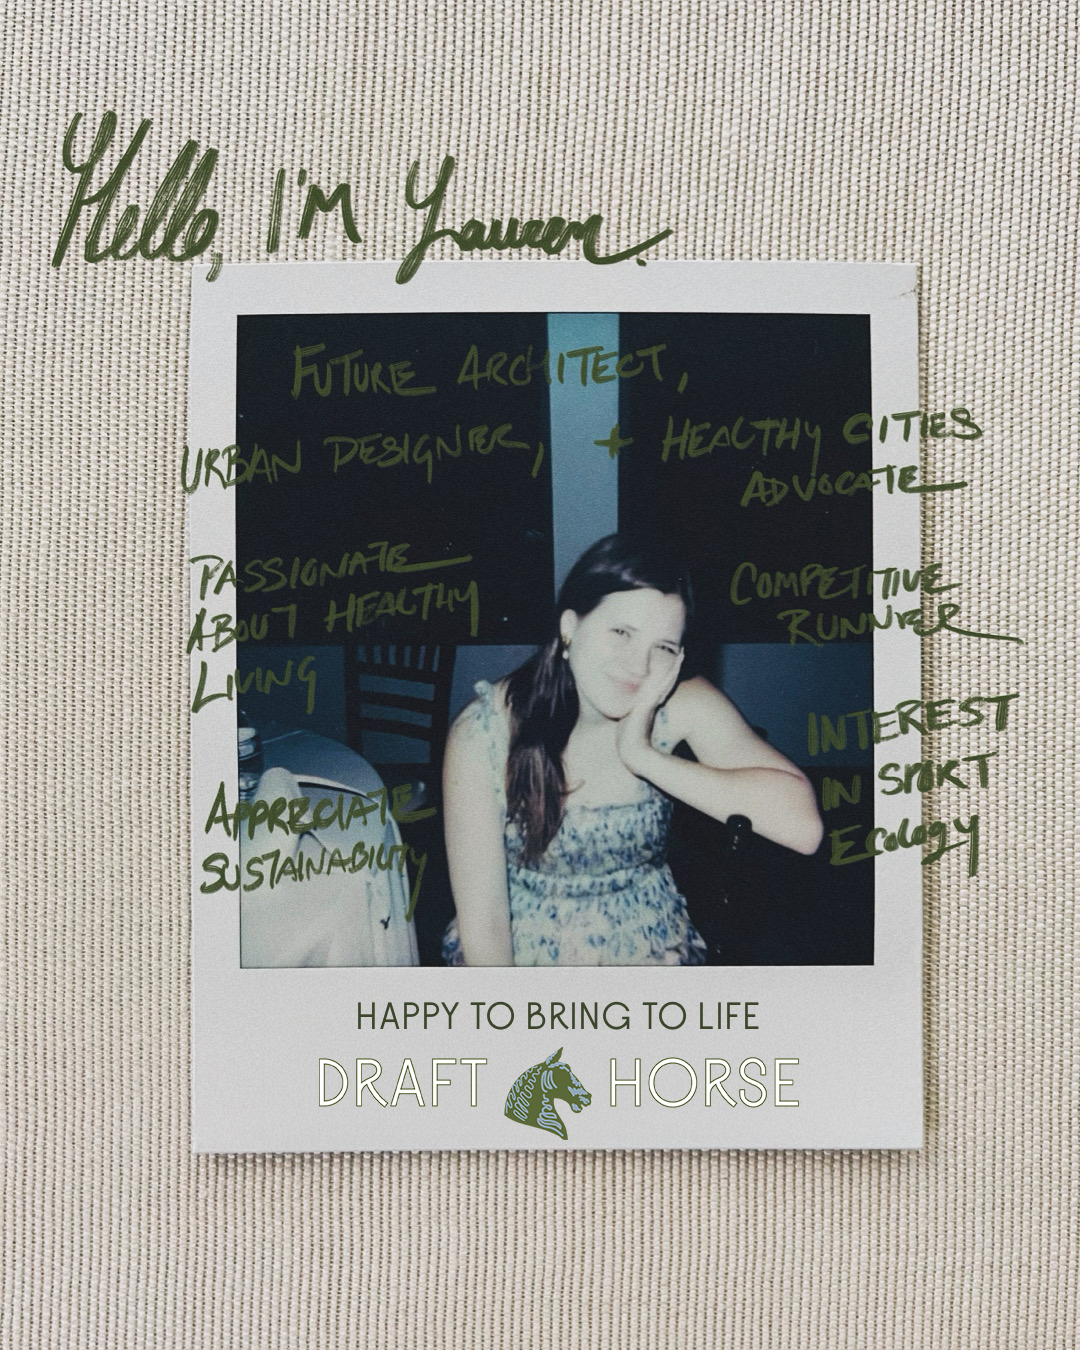 Hello, I'M Lauren.
FUTURE ARCHITECT,
URBAN DESIGNER, + HEALTHY CITIES
ADVOCATE
PASSIONATE
ABOUT HEALTHY
LIVING
COMPETITIVE
RUNNER
INTEREST
IN SPORT
Ecology
APPRECIATE
SUSTAINABILITY
HAPPY TO BRING TO LIFE
DRAFT HORSE